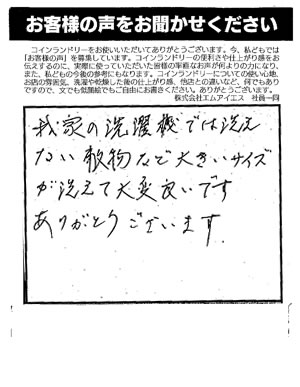 お客様の声をお聞かせください
コインランドリーをお使いいただいてありがとうございます。今、私どもでは
「お客様の声」を募集しています。コインランドリーの便利さや仕上がり感をお
伝えするのに、実際に使っていただいた皆様の率直なお声が何よりの力になり、
また、私どもの今後の参考にもなります。コインランドリーについての使い心地、
お店の雰囲気、洗濯や乾燥した後の仕上がり感、他店との違いなど、何でもあり
ですので、文でも似顔絵でもご自由にお書きください。ありがとうございます。
株式会社エムアイエス 社員一同
我家の洗濯機では洗え
ない敷物など大きいサイズ
が洗えて大変良いです
ありがとうございます